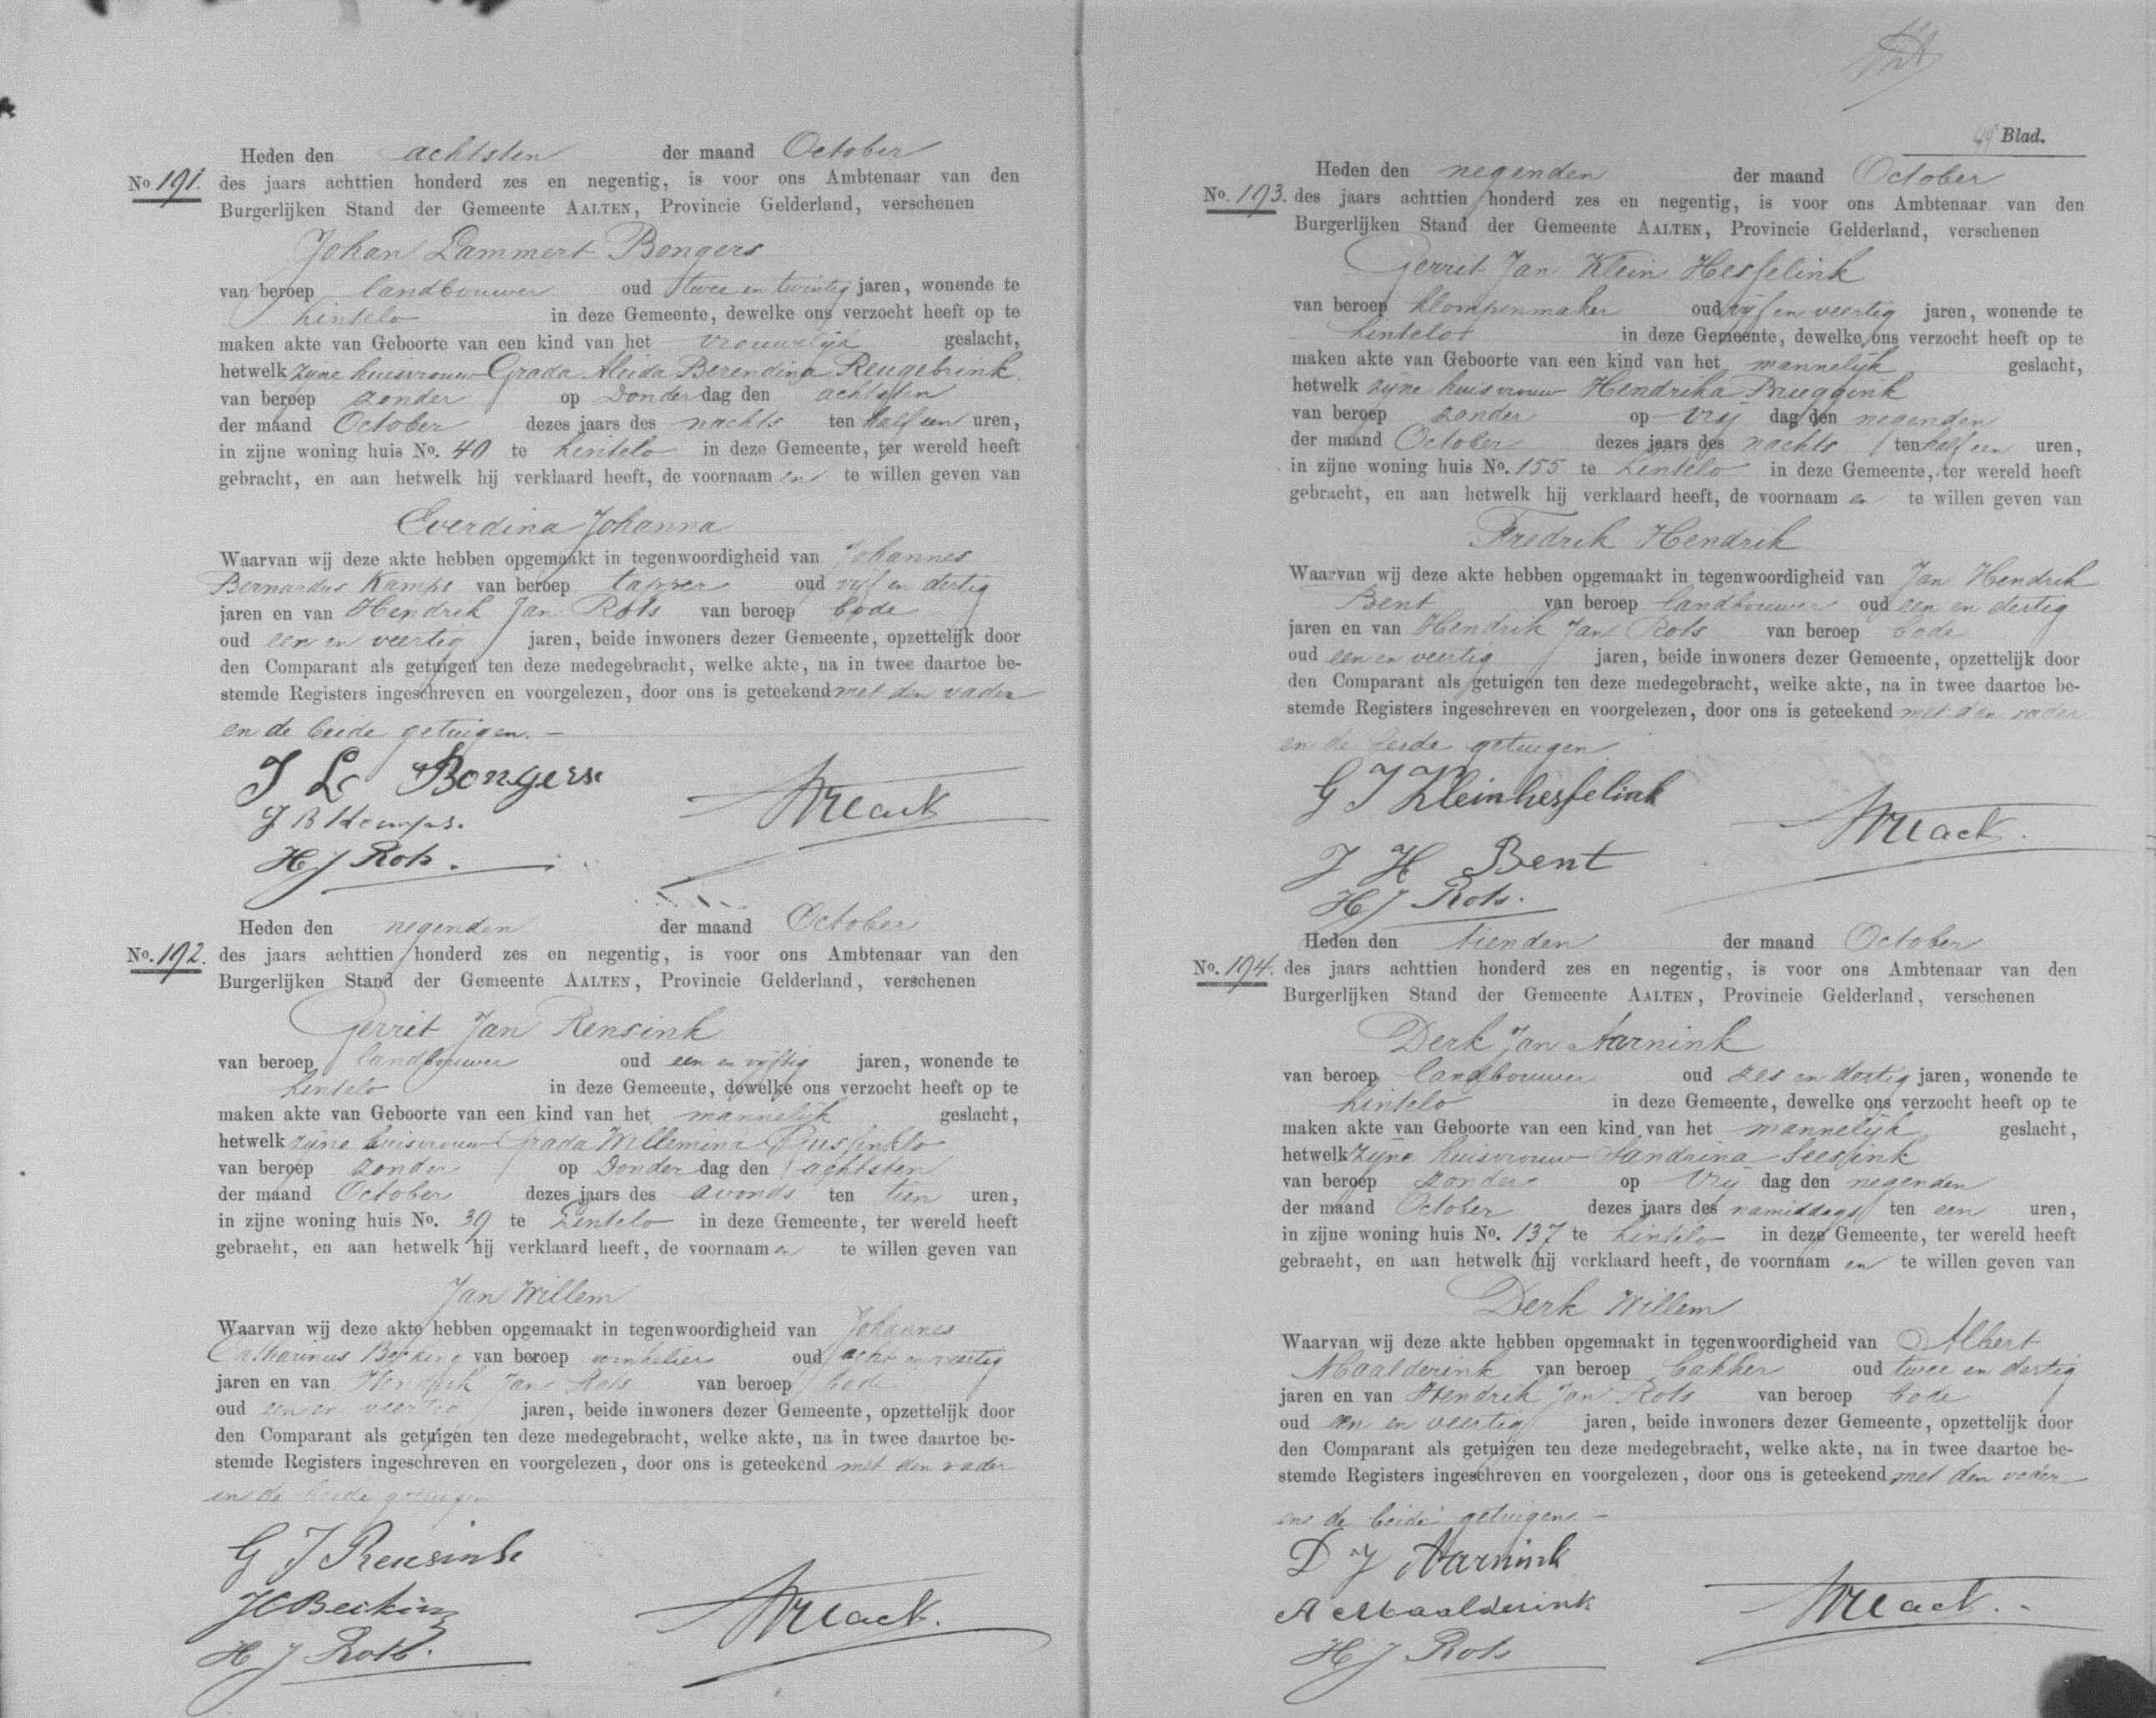 Heden den achtsten der maand October
No 191. des jaars achttien honderd zes en negentig, is voor ons Ambtenaar van den
Burgerlijken Stand der Gemeente AALTEN, Provincie Gelderland, verschenen
Johan Lammert Bongers
van beroep landbouwer oud twee en twintig jaren, wonende te
Lintelo in deze Gemeente, dewelke ons verzocht heeft op te
maken akte van Geboorte van een kind van het vrouwelijk geslacht,
hetwelk zijne huisvrouw Grada Aleida Berendina Reugebrink
van beroep zonder op Donderdag den achtsten
der maand October dezes jaars des nachts ten half een uren,
in zijne woning huis No. 40 te Lintelo in deze Gemeente, ter wereld heeft
gebracht, en aan hetwelk hij verklaard heeft, de voornaam en te willen geven van
Everdina Johanna
Waarvan wij deze akte hebben opgemaakt in tegenwoordigheid van Johannes
Bernardus Kamps van beroep tapper oud vijf en dertig
jaren en van Hendrik Jan Rots van beroep bode
oud een en veertig jaren, beide inwoners dezer Gemeente, opzettelijk door
den Comparant als getuigen ten deze medegebracht, welke akte, na in twee daartoe be-
stemde Registers ingeschreven en voorgelezen, door ons is geteekend met den vader
en de beide getuigen. —
J L Bongers
J B Kamps.
H J Rots.
Heden den negenden der maand October
No. 192. des jaars achttien honderd zes en negentig, is voor ons Ambtenaar van den
Burgerlijken Stand der Gemeente AALTEN, Provincie Gelderland, verschenen
Gerrit Jan Rensink
van beroep landbouwer oud een en vijftig jaren, wonende te
Lintelo in deze Gemeente, dewelke ons verzocht heeft op te
maken akte van Geboorte van een kind van het mannelijk geslacht,
hetwelk zijne huisvrouw Grada Willemina
van beroep zonder op Donderdag den achtsten
der maand October dezes jaars des avonds ten tien uren,
in zijne woning huis No. 39 te Lintelo in deze Gemeente, ter wereld heeft
gebracht, en aan hetwelk hij verklaard heeft, de voornaam en te willen geven van
Jan Willem
Waarvan wij deze akte hebben opgemaakt in tegenwoordigheid van Johannes
Catharinus Becking van beroep winkelier oud acht en veertig
jaren en van Hendrik Jan Rots van beroep bode
oud een en veertig jaren, beide inwoners dezer Gemeente, opzettelijk door
den Comparant als getuigen ten deze medegebracht, welke akte, na in twee daartoe be-
stemde Registers ingeschreven en voorgelezen, door ons is geteekend met den vader
en de beide getuigen
G J Rensink
J C Becking
H J Rots.
49 Blad.
Heden den negenden der maand October
No. 193. des jaars achttien honderd zes en negentig, is voor ons Ambtenaar van den
Burgerlijken Stand der Gemeente AALTEN, Provincie Gelderland, verschenen
Gerrit Jan Klein Hesselink
van beroep klompenmaker oud vijf en veertig jaren, wonende te
Lintelo in deze Gemeente, dewelke ons verzocht heeft op te
maken akte van Geboorte van een kind van het mannelijk geslacht,
hetwelk zijne huisvrouw Hendrika Bruggink
van beroep zonder op Vrij dag den negenden
der maand October dezes jaars des nachts ten half een uren,
in zijne woning huis No. 155 te Lintelo in deze Gemeente, ter wereld heeft
gebracht, en aan hetwelk hij verklaard heeft, de voornaam en te willen geven van
Fredrik Hendrik
Waarvan wij deze akte hebben opgemaakt in tegenwoordigheid van Jan Hendrik
Bent van beroep landbouwer oud een en dertig
jaren en van Hendrik Jan Rots van beroep bode
oud een en veertig jaren, beide inwoners dezer Gemeente, opzettelijk door
den Comparant als getuigen ten deze medegebracht, welke akte, na in twee daartoe be-
stemde Registers ingeschreven en voorgelezen, door ons is geteekend met den vader
en de beide getuigen
G J Kleinhesselink
J H Bent
H J Rots.
Heden den tienden der maand October
No. 194. des jaars achttien honderd zes en negentig, is voor ons Ambtenaar van den
Burgerlijken Stand der Gemeente AALTEN, Provincie Gelderland, verschenen
Derk Jan Aarnink
van beroep landbouwer oud zes en dertig jaren, wonende te
Lintelo in deze Gemeente, dewelke ons verzocht heeft op te
maken akte van Geboorte van een kind van het mannelijk geslacht,
hetwelk zijne huisvrouw Sandrina Seessink
van beroep zonder op Vrij dag den negenden
der maand October dezes jaars des namiddags ten een uren,
in zijne woning huis No. 137 te Lintelo in deze Gemeente, ter wereld heeft
gebracht, en aan hetwelk hij verklaard heeft, de voornaam en te willen geven van
Derk Willem
Waarvan wij deze akte hebben opgemaakt in tegenwoordigheid van Albert
Maalderink van beroep bakker oud twee en dertig
jaren en van Hendrik Jan Rots van beroep bode
oud een en veertig jaren, beide inwoners dezer Gemeente, opzettelijk door
den Comparant als getuigen ten deze medegebracht, welke akte, na in twee daartoe be-
stemde Registers ingeschreven en voorgelezen, door ons is geteekend met den vader
en de beide getuigen. —
D J Aarnink
A Maalderink
H J Rots